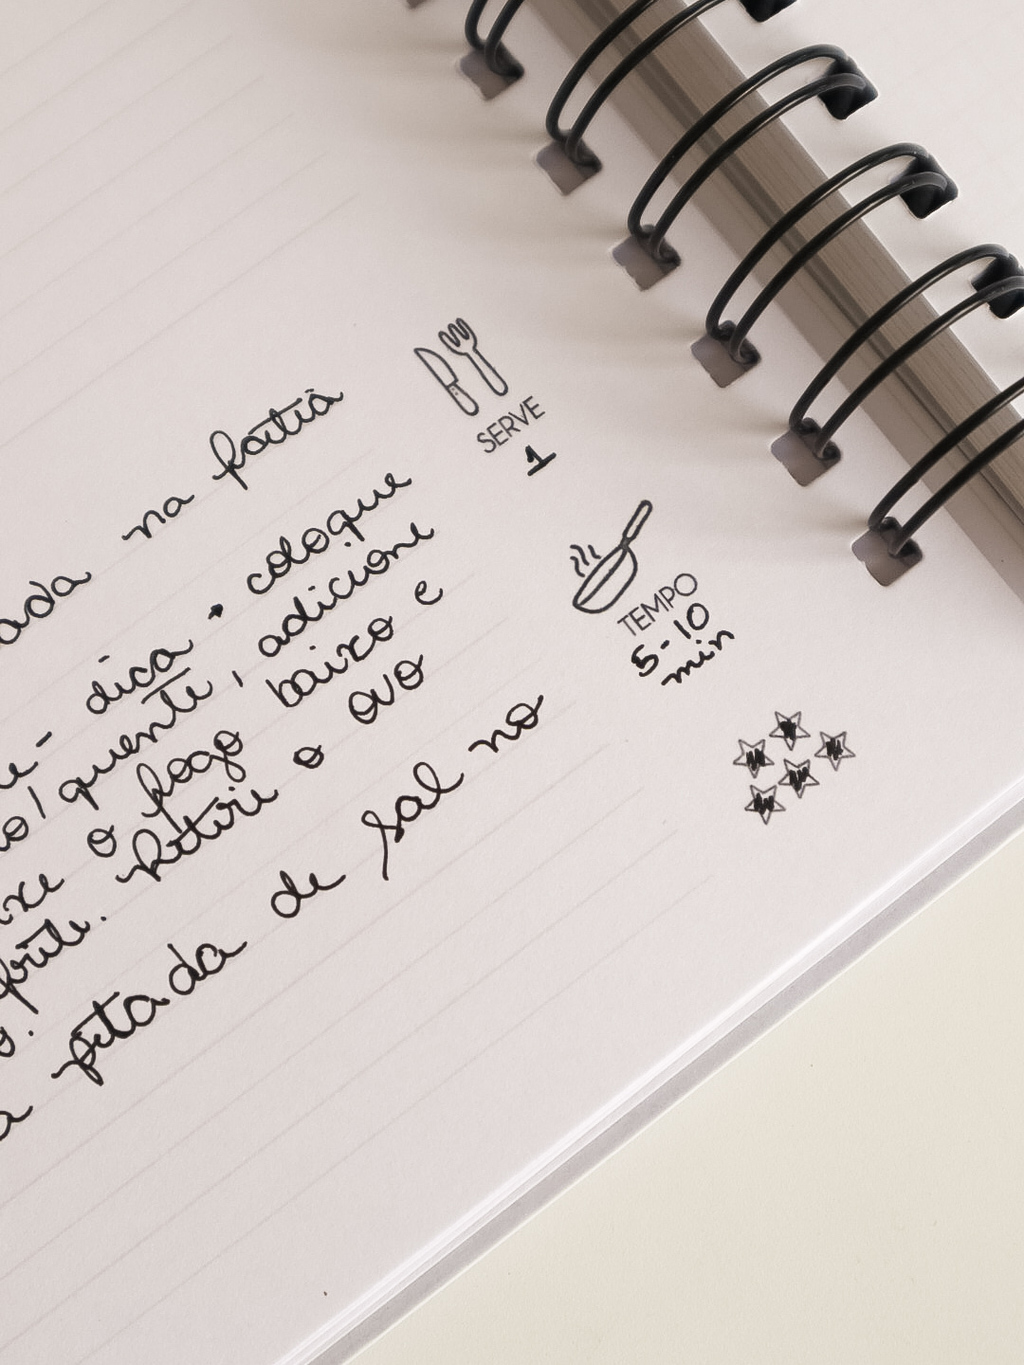 na fatia
dica • coloque
quente, adicione
o fogo baixo e
Retire o ovo
pitada de sal no
SERVE
1
TEMPO
5-10
min